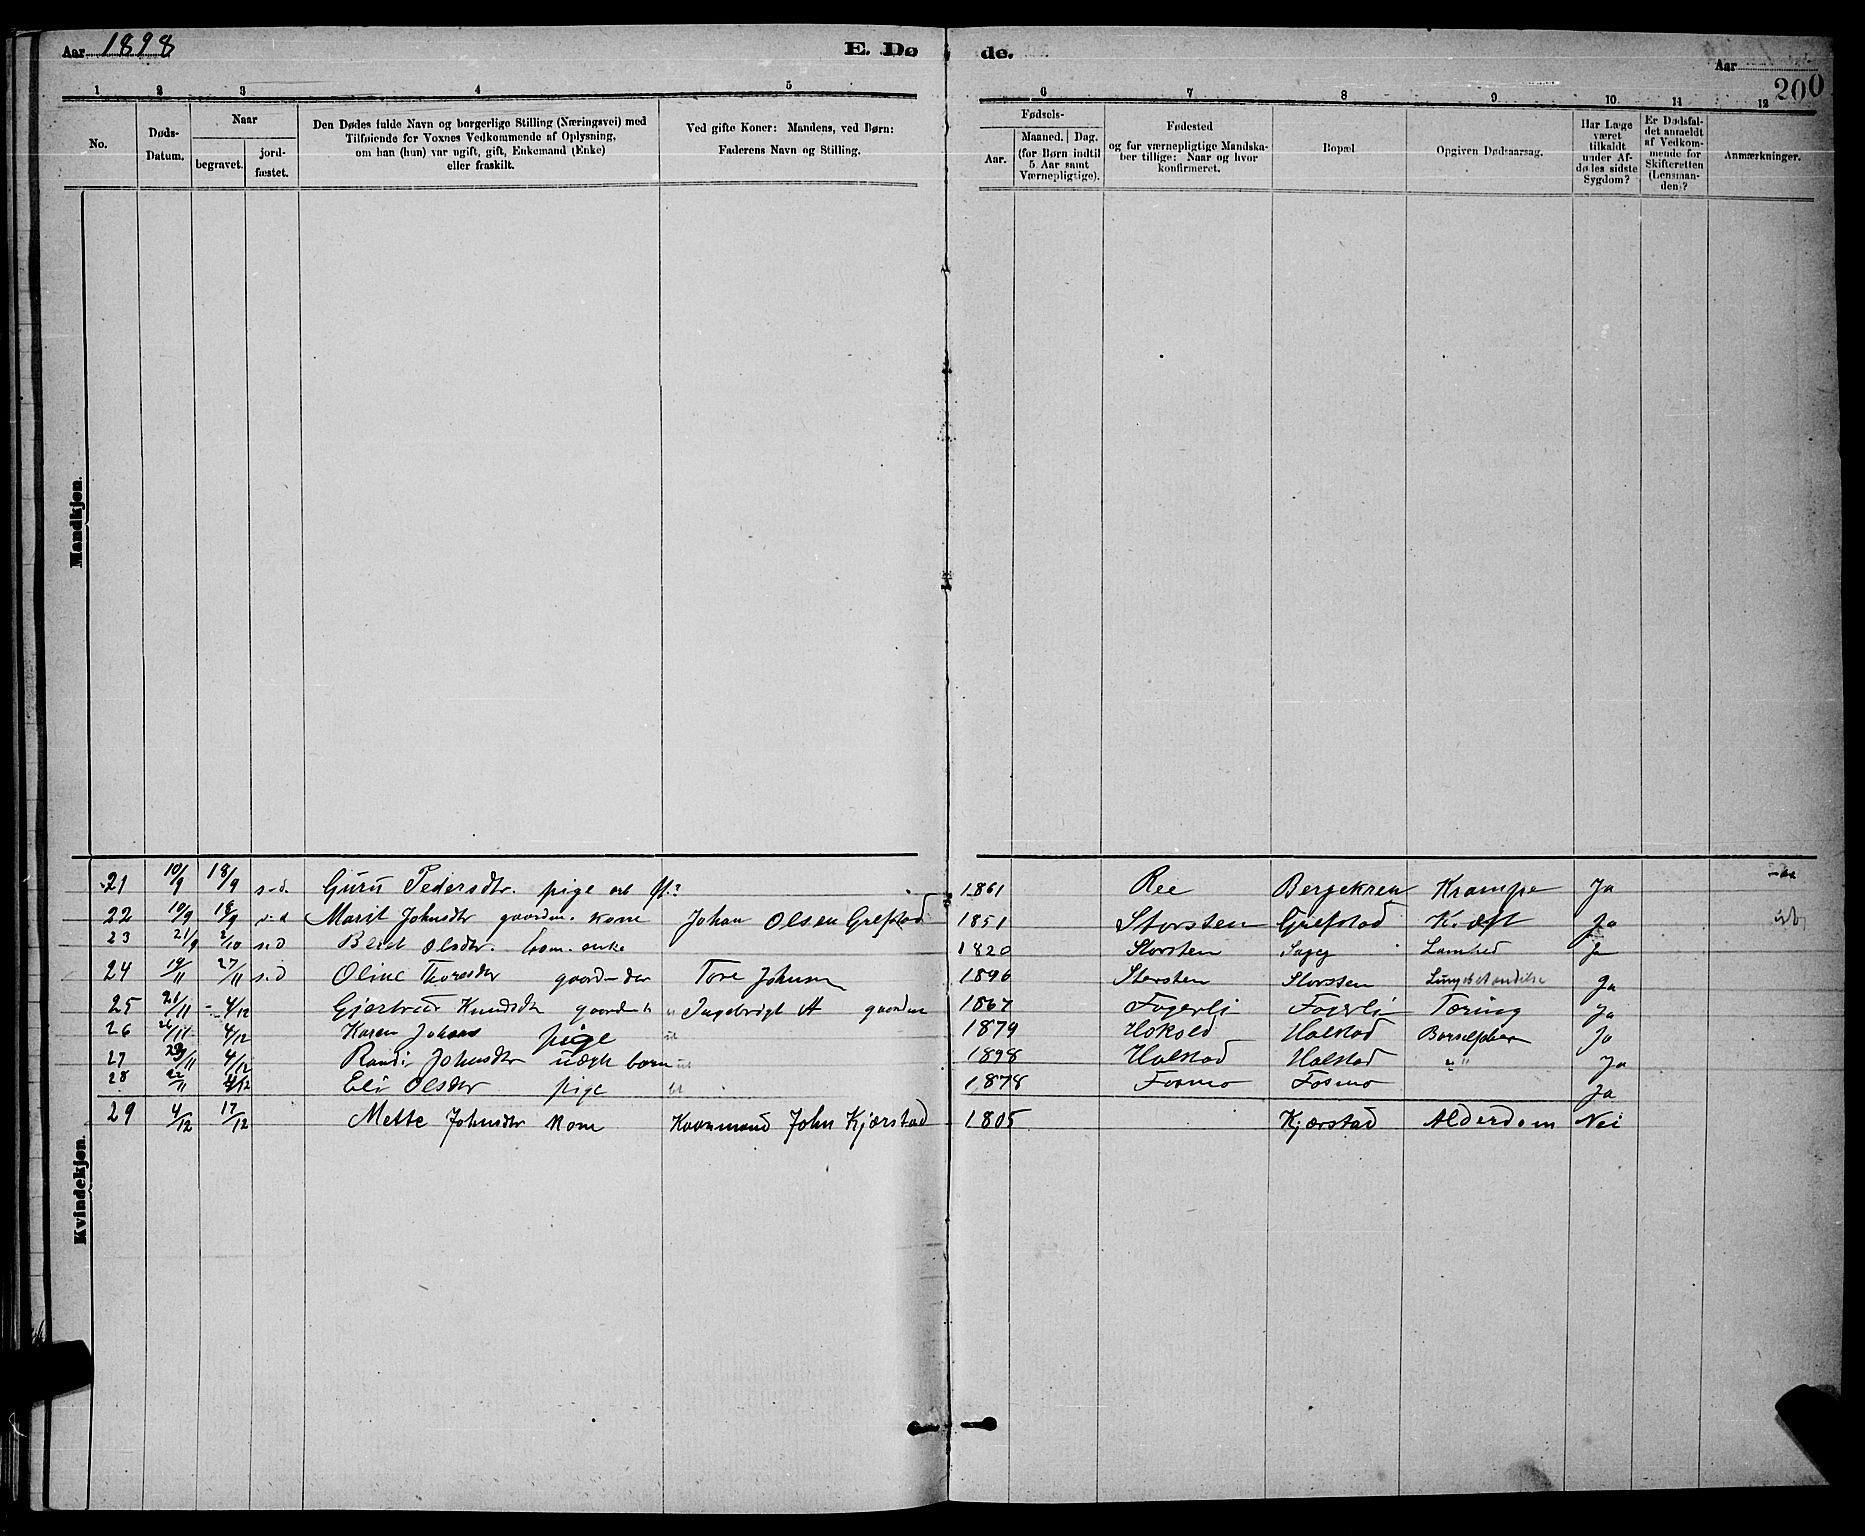 Aar 1898
E. Dø
de.
Aar
200
1 2 3 4 5
6 7 8 9 10 11 12
No.
Døds-
Datum.
Naar
begravet.
jord-
fæstet.
Den Dødes fulde Navn og borgerlige Stilling (Næringsvei) med
Tilføiende for Voxnes Vedkommende af Oplysning,
om han (hun) var ugift, gift, Enkemand (Enke)
eller fraskilt.
Ved gifte Koner: Mandens, ved Børn:
Faderens Navn og Stilling.
Fødsels-
Aar.
Maaned. Dag.
(for Børn indtil
5 Aar samt
Værnepligtige).
Fødested
og for værnepligtige Mandska-
ber tillige: Naar og hvor
konfirmeret.
Bopæl
Opgiven Dødsaarsag.
Har Læge
været
tilkaldt
under Af-
dødes sidste
Sygdom?
Er Dødsfal-
det anmeldt
af Vedkom-
mende for
Skifteretten
(Lensman-
den)?
Anmærkninger.
Mandkjøn.
Kvindekjøn.
21 10/9 18/9 s.d. Guru Pedersdtr. pige 1861 Ree Bergskren Krampe Ja
22 10/9 18/9 s.d Marit Johnsdtr gaardm. kone Johan Olsen Grefstad 1851 Storsten Grefstad Kræft Ja
23 21/9 2/10 s.d Berit Olsdtr. enke 1820 Storsten Lamhed Ja
24 19/11 27/11 s.d Oline Thoresdtr gaardm dtr Tore Johnsen 1896 Storsten Storsten Lungebetændelse Ja
25 21/11 4/12 Gjertrud Knudsdtr Ingebrigt gaardm 1867 Fagerli Fagerli Tæring Ja
26 4/12 Karen Johans pige 1879 Hoksld Halstad Ja
27 4/12 Randi Johnsdtr uægte barn 1898 Halstad Halstad " Ja
28 22/11 4/12 Eli Olsdtr pige 1878 Fosmo Fosmo Ja
29 4/12 17/12 Mette Johnsdtr Kone Kaarmand John Kjærstad 1805 Kjærstad Alderdom Nei